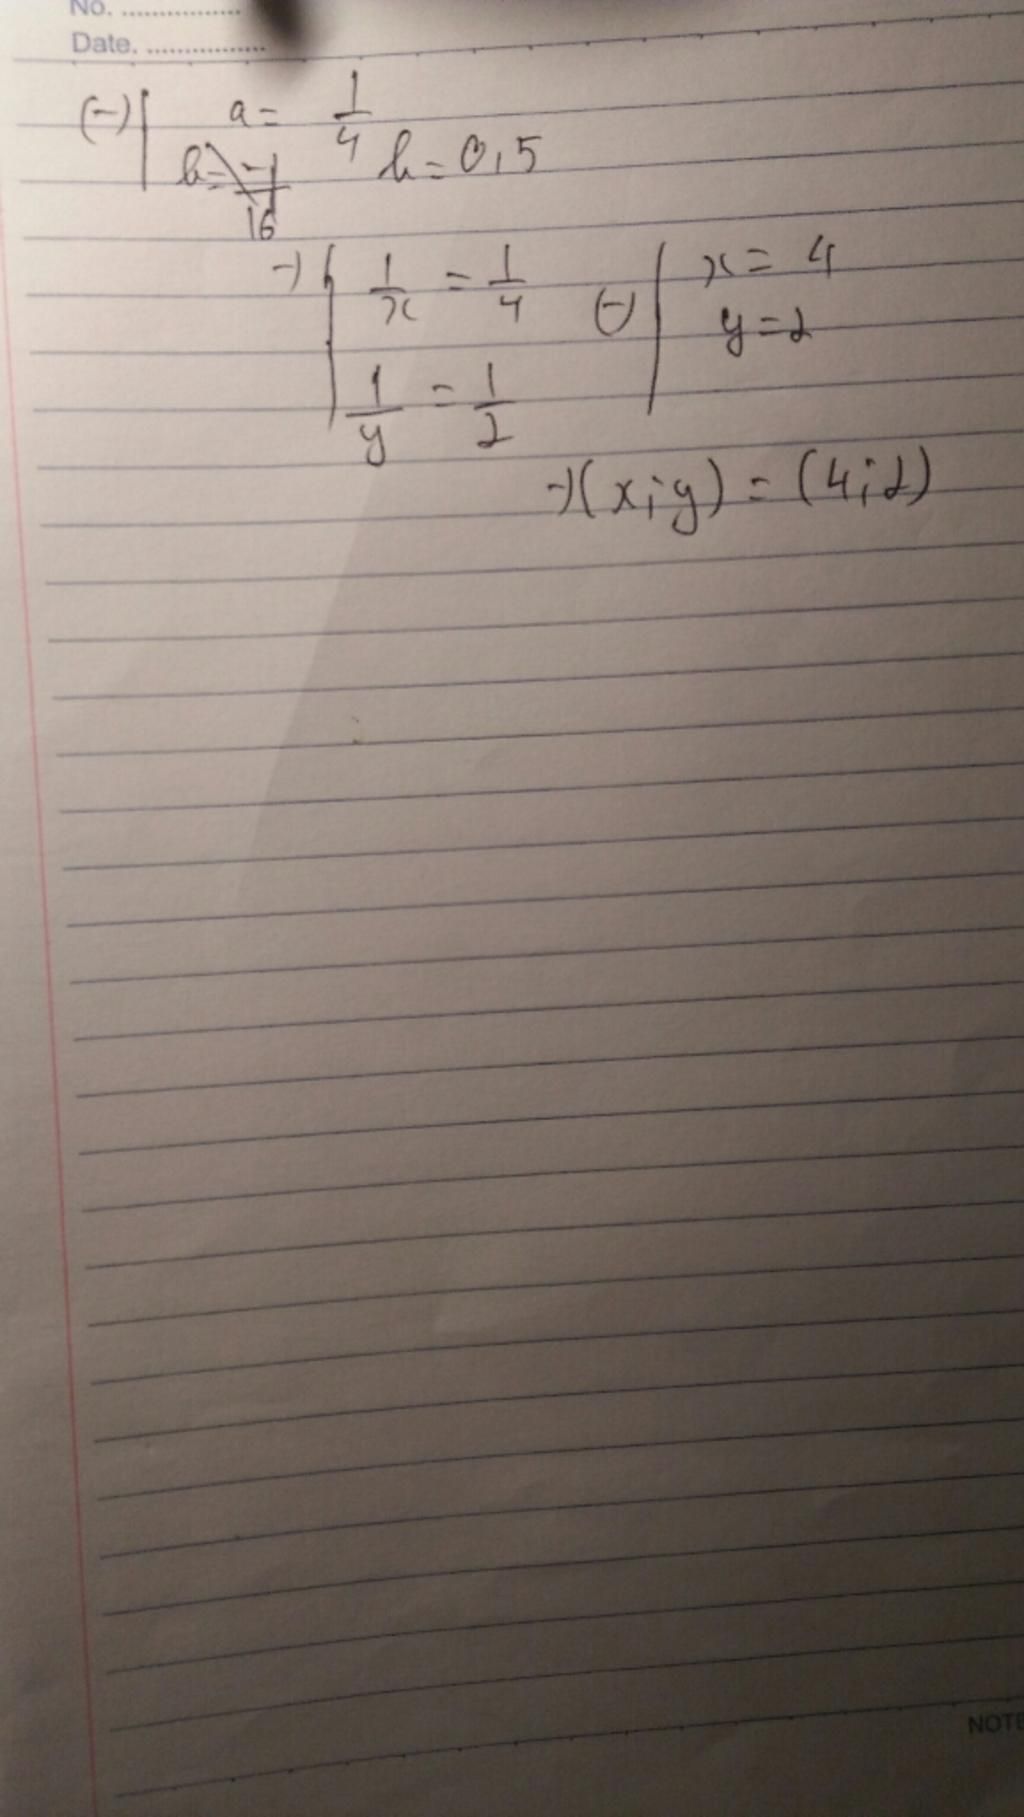 No. ................
Date. ................
(-) | a = 1/4
b = -1/16 b = 0,5
-) { 1/x = 1/4 (-) | x = 4
1/y = 1/2 y = 2
-) (x;y) = (4;2)
NOTE